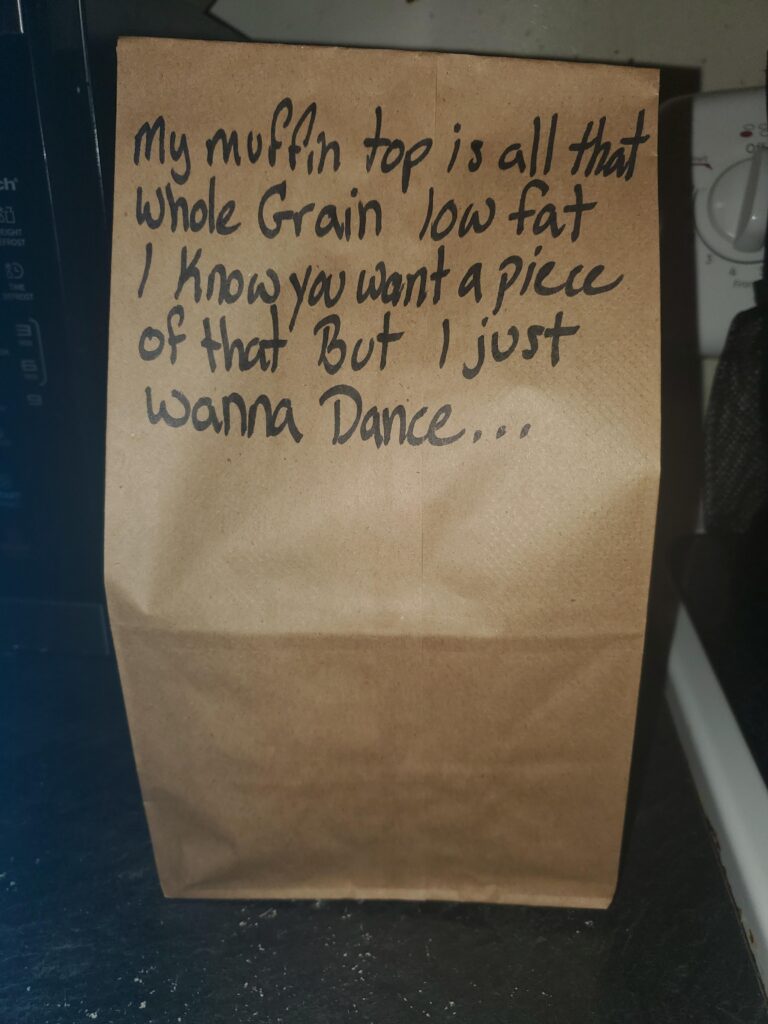 My muffin top is all that
Whole Grain low fat
I Know you want a piece
of that But I just
wanna Dance...